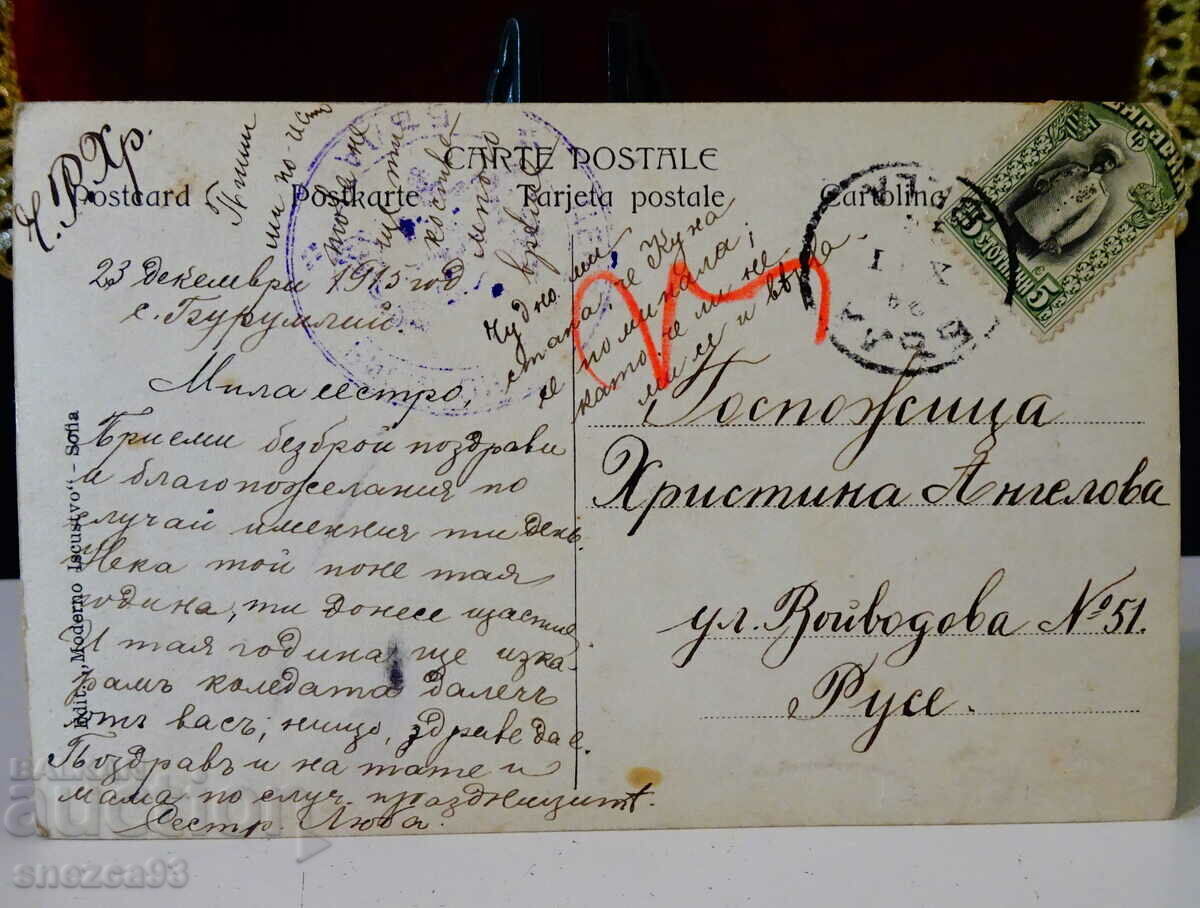 Ч.Р.Хр.
CARTE POSTALE
Postcard Postkarte Tarjeta postale Cartolina
Пиши
ми по-
това не
ти
коства
много
време
23 декември 1915 год.
с. Бурумлий.
Мила сестро,
Приеми безброй поздрави
и благопожелания по
случай именния ти день.
Нека той поне тая
година, ти донесе щастие
И тая година ще изка-
рамъ коледата далечъ
отъ васъ; нищо, здраве да е.
Поздравъ и на тате и
мама по случ. празницитѣ.
Сестр. Люба.
Чудно ми
стана, че Куна
се поминала;
като че ли не
ми се и вѣрва.
Госпожица
Христина Ангелова
ул. Войводова № 51.
Русе.
Edit. „Moderno Iscustvo“ - Sofia
БЪЛГАРИЯ
5 СТОТИНКИ 5
BALKAN
auction
snezca93